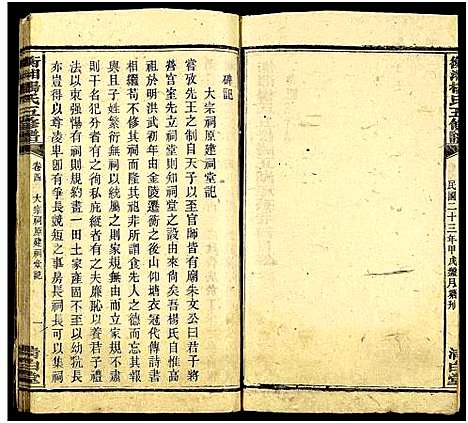 衡湘楊氏五修譜
民國二十三年甲戌歲月繁刊
清白堂
碑記
大宗祠原建祠堂記
嘗攷先王之制自天子以至於官師皆有廟朱文公曰君子將
營宮室先立祠堂則知祠堂之設由來尚矣吾楊氏自惟高
祖於明洪武初由金陵遷衡之後山仰塘衣冠代傳詩書
相繼苟不修其祠則上不能祀其先祖非所謂食先人之德而忘其報
且與子姓繁衍散無祠以統攝之則家規無由而立家規不肅則
丁眾不知犯分者有之徇私庇縱者有之夫廉恥以養君子禮
法以束小人無祠則規約晝一田土家產固不至以幼抗長
亦豈得以尊凌卑即有爭長競短之事房長戶長祠長可以集祠
衡湘楊氏五修譜
卷四
大宗祠原建祠堂記
一
清白堂